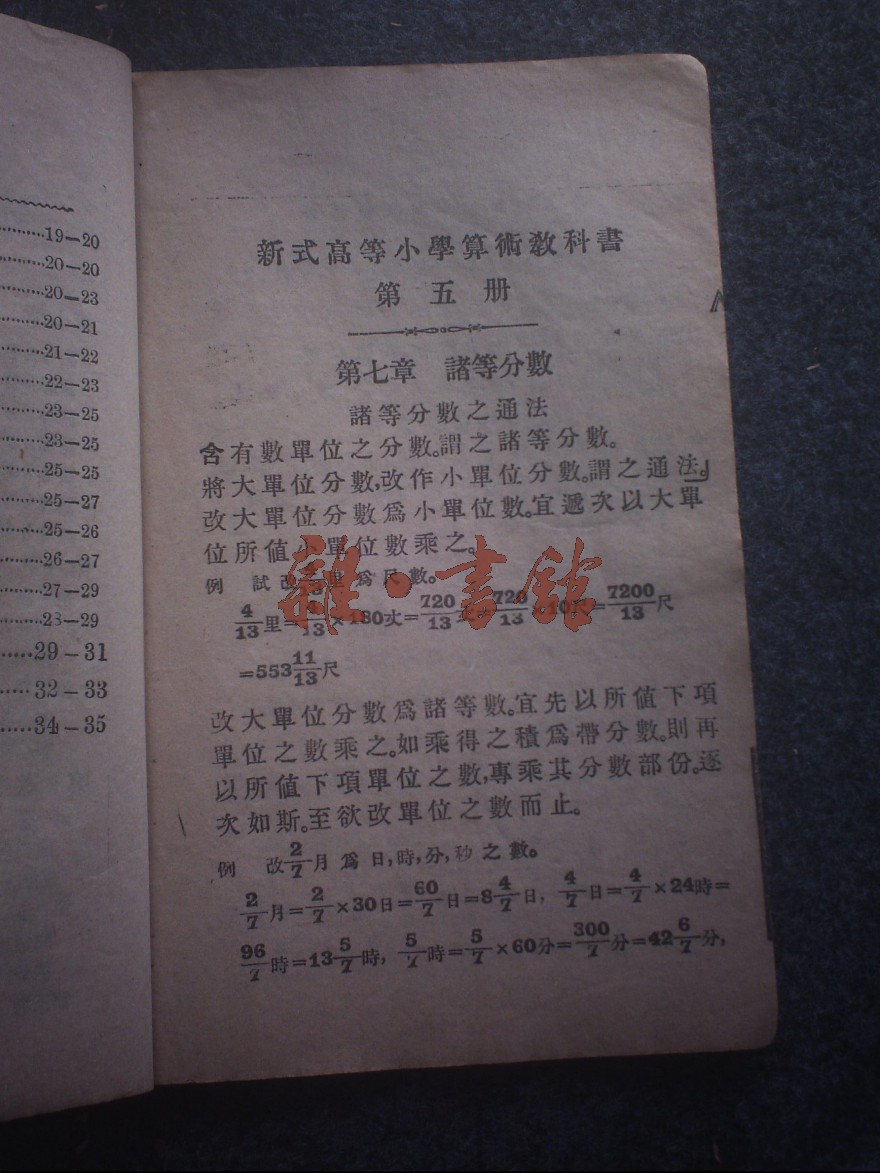 19—20
20—20
20—23
20—21
21—22
22—23
23—25
23—25
25—25
25—27
25—26
26—27
27—29
28—29
29—31
32—33
34—35
新式高等小學算術教科書
第五册
第七章 諸等分數
諸等分數之通法
含有數單位之分數。謂之諸等分數。
將大單位分數,改作小單位分數。謂之通法。
改大單位分數爲小單位數。宜遞次以大單
位所値小單位數乘之。
例 試改4/13里爲尺數。
4/13里=4/13×180丈=720/13丈=720/13×10尺=7200/13尺
=553 11/13尺
改大單位分數爲諸等數。宜先以所値下項
單位之數乘之。如乘得之積爲帶分數。則再
以所値下項單位之數,專乘其分數部份。逐
次如斯。至欲改單位之數而止。
例 改2/7月爲日,時,分,秒之數。
2/7月=2/7×30日=60/7日=8 4/7日, 4/7日=4/7×24時=
96/7時=13 5/7時, 5/7時=5/7×60分=300/7分=42 6/7分,
雜·書館